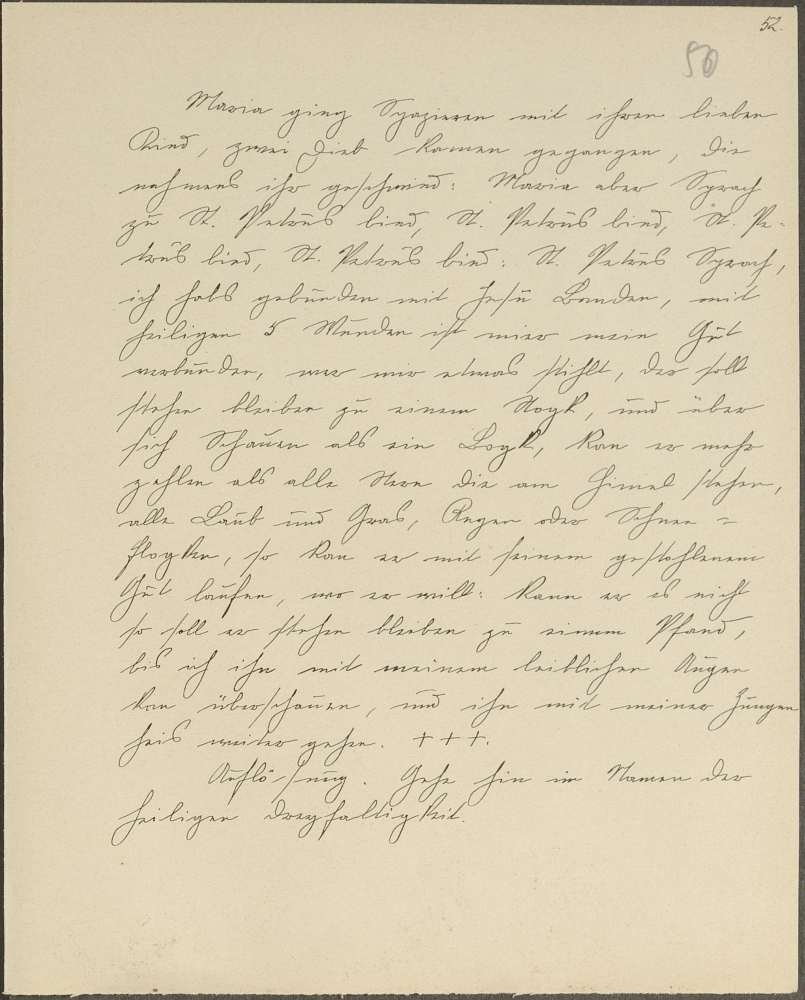 52.
50
Maria ging Spazieren mit ihren lieben
Kind, zwei Dieb kamen gegangen, die
nahmens ihr geschwind: Maria aber Sprach
zu St. Petrus bind, St. Petrus bind, St. Pe-
trus bind, St. Petrus bind: St. Petrus Sprach,
ich habs gebunden mit Jesu Banden, mit
heiligen 5 Wunden ist mier mein Gut
verbunden, wer mir etwas stihlt, der soll
stehen bleiben zu einem Stogk, und über
sich Schauen als ein Bogk, kan er mehr
zehlen als alle Stern die am Himel stehen,
alle Laub und Gras, Regen oder Schnee =
flogken, so kan er mit seinem gestohlenem
Gut laufen, wo er will: kann er es nicht
so soll er stehen bleiben zu einem Pfand,
bis ich ihn mit meinem leiblichen Augen
kan überschauen, und ihn mit meiner Zungen
heis weiter gehen. + + +.
Auflösung. Gehe hin im Namen der
heiligen Dreyfaltigkeit.